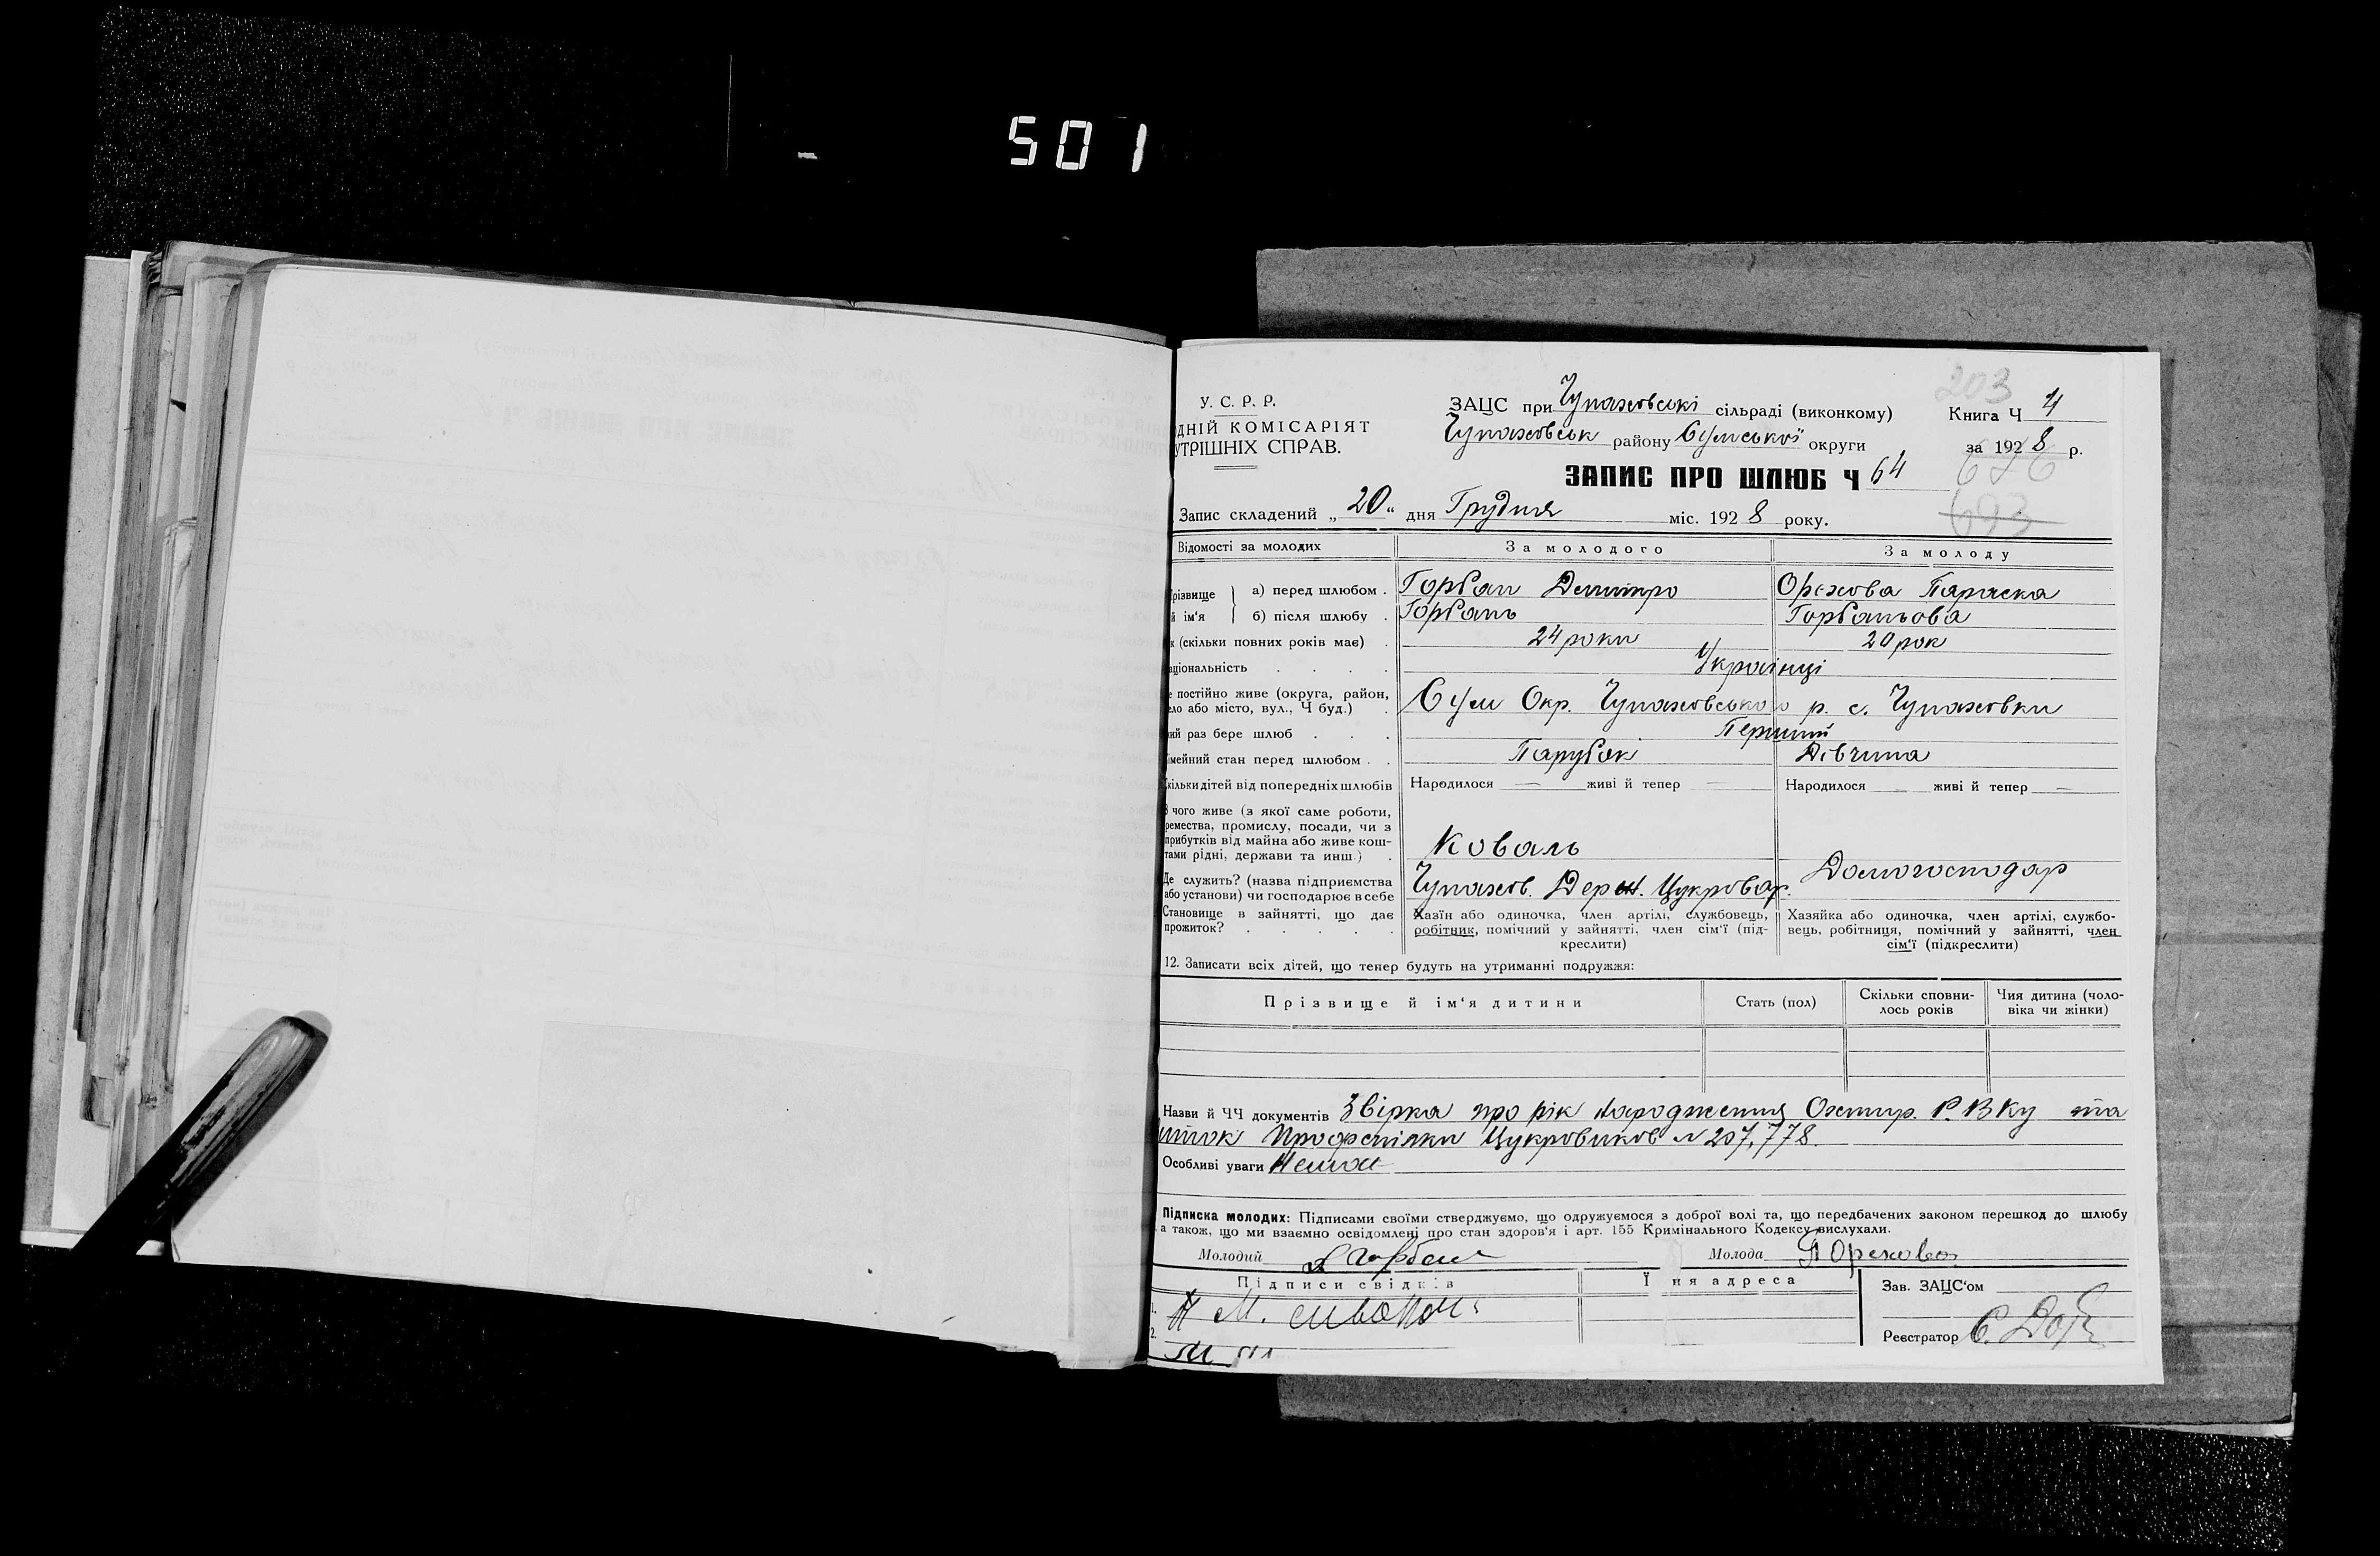 501
203
У. С. Р. Р.
ДНІЙ КОМІСАРІЯТ
УТРІШНІХ СПРАВ.
ЗАЦС при Чупаховські сільраді (виконкому)
Чупаховськ району Сумської округи
Книга Ч 4
за 1928 р.
ЗАПИС ПРО ШЛЮБ Ч 64
676
693
Запис складений „20“ дня Грудня міс. 1928 року.
Відомості за молодих За молодого За молоду
різвище й ім‘я а) перед шлюбом . Горбан Дмитро Орєхова Параска
б) після шлюбу . Горбань Горбаньова
к (скільки повних років має) . 24 роки 20 рок
аціональність . . . . Українці
е постійно живе (округа, район,
ело або місто, вул., Ч буд.) . Сум Окр. Чупаховського р. с. Чупаховки
ий раз бере шлюб . . . Перший
імейний стан перед шлюбом . . Парубок Дівчина
кільки дітей від попередніх шлюбів Народилося — живі й тепер — Народилося — живі й тепер —
З чого живе (з якої саме роботи,
ремества, промислу, посади, чи з
прибутків від майна або живе кош-
тами рідні, держави та инш.) . Коваль
Домогосподар
Де служить? (назва підприємства
або установи) чи господарює в себе Чупахов. Держ. Цукровар.
Становище в зайнятті, що дає
прожиток? . . . . .
Хазїн або одиночка, член артілі, службовець,
робітник, помічний у зайнятті, член сім‘ї (під-
креслити)
Хазяйка або одиночка, член артілі, службо-
вець, робітниця, помічний у зайнятті, член
сім‘ї (підкреслити)
12. Записати всіх дітей, що тепер будуть на утриманні подружжя:
Прізвище й ім‘я дитини Стать (пол) Скільки сповни-
лось років Чия дитина (чоло-
віка чи жінки)
Назви й ЧЧ документів Звірка про рік народження Охтир. Р.В.Ку та
иток Профспілки Цукровиков № 207,778.
Особливі уваги Немає
Підписка молодих: Підписами своїми стверджуємо, що одружуємося з доброї волі та, що передбачених законом перешкод до шлюбу
а також, що ми взаємно освідомлені про стан здоров‘я і арт. 155 Кримінального Кодексу вислухали.
Молодий Д Горбань Молода П Орехова
Підписи свідків Їхня адреса Зав. ЗАЦС‘ом
1.
2.
Реєстратор